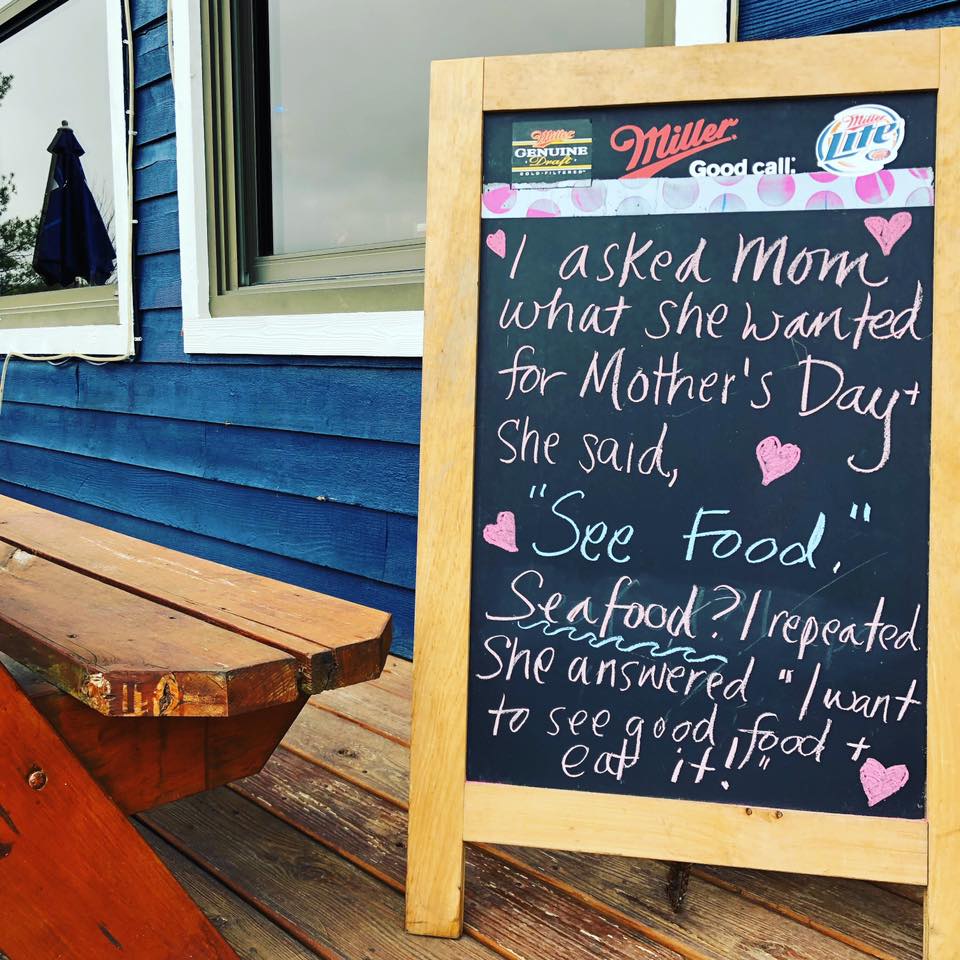 Miller
GENUINE
Draft
COLD-FILTERED
Miller
Good call.
Miller
Lite
I asked Mom
what she wanted
for Mother's Day +
she said,
"See Food."
Seafood? I repeated
She answered "I want
to see good food +
eat it!"